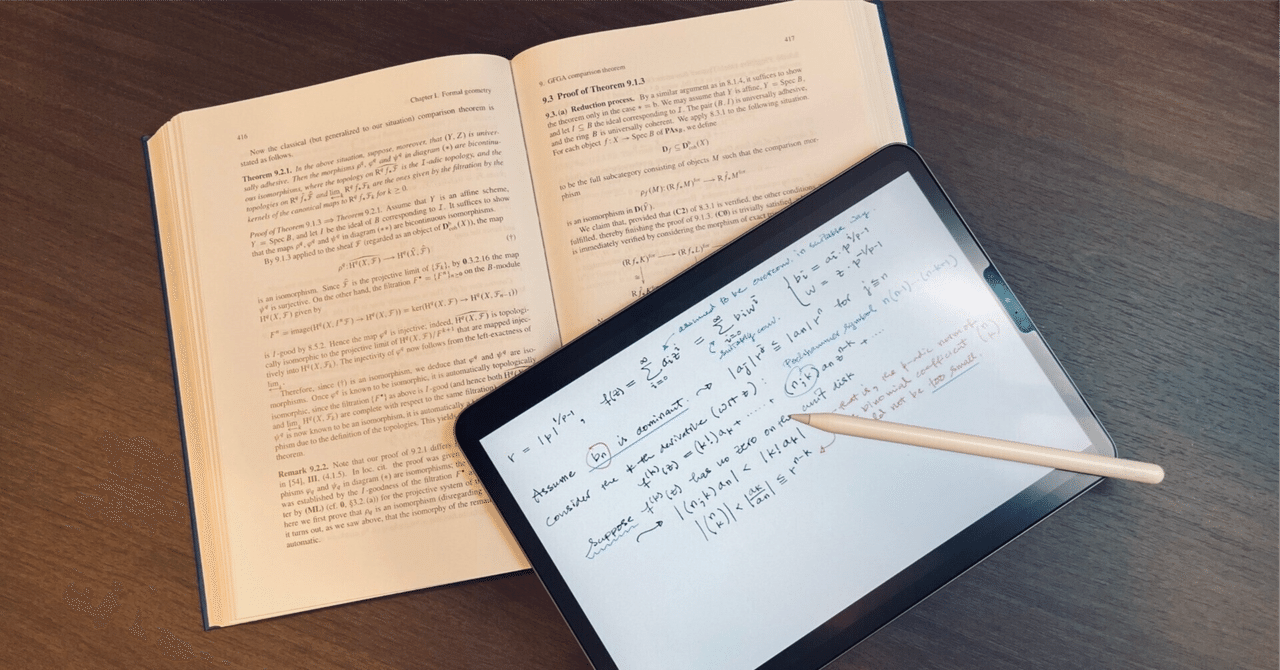 416
Chapter I. Formal geometry
Now the classical (but generalized to our situation) comparison theorem is
stated as follows.
Theorem 9.2.1. In the above situation, suppose, moreover, that (Y, Z) is univer-
sally adhesive. Then the morphisms ρ^q, φ^q and ψ^q in diagram (∗) are bicontinu-
ous isomorphisms, where the topology on
topologies on
are the I-adic topology, and the
are the ones given by the filtration by the
kernels of the canonical maps to R^q f_*F_k for k ≥ 0.
Proof of Theorem 9.1.3 ⟹ Theorem 9.2.1. Assume that Y is an affine scheme,
Y = Spec B, and let I be the ideal of B corresponding to I. It suffices to show
that the maps ρ^q, φ^q and ψ^q in diagram (∗∗) are bicontinuous isomorphisms.
By 9.1.3 applied to the sheaf F (regarded as an object of D^b_coh(X)), the map
(†)
is an isomorphism. Since
is the projective limit of {F_k}, by 0.3.2.16 the map
ψ^q is surjective. On the other hand, the filtration F^• = {F^n}_{n≥0} on the B-module
H^q(X, F) given by
F^n = image(H^q(X, I^nF) → H^q(X, F)) = ker(H^q(X, F) → H^q(X, F_{n−1}))
is I-good by 8.5.2. Hence the map φ^q is injective; indeed, H^q(X, F) is topologi-
cally isomorphic to the projective limit of H^q(X, F)/F^{k+1} that are mapped injec-
tively into H^q(X, F_k). The injectivity of φ^q now follows from the left-exactness of
lim.
Therefore, since (†) is an isomorphism, we deduce that φ^q and ψ^q are iso-
morphisms. Once φ^q is known to be isomorphic, it is automatically topologically
isomorphic, since the filtration {F^n} as above is I-good (and hence both
and lim H^q(X, F_k) are complete with respect to the same filtration)
ψ^q is now known to be an isomorphism, it is automatically
tion due to the definition of the topologies. This yields
Remark 9.2.2. Note that our proof of 9.2.1 differs
in [54], III, (4.1.5). In loc. cit. the proof was given
phisms φ_q and ψ_q in diagram (∗) are isomorphisms; the
was established by the I-goodness of the filtration F^•
ter by (ML) (cf. 0, §3.2.(a)) for the projective system of
here we first prove that ρ_q is an isomorphism (disregarding
it turns out, as we saw above, that the isomorphy of the
automatic.
417
9. GFGA comparison theorem
9.3 Proof of Theorem 9.1.3
9.3.(a) Reduction process. By a similar argument as in 8.1.4, it suffices to show
the theorem only in the case ∗ = b. We may assume that Y is affine, Y = Spec B,
and let I ⊆ B the ideal corresponding to I. The pair (B, I) is universally adhesive,
and the ring B is universally coherent. We apply 8.3.1 to the following situation.
For each object f: X → Spec B of PAs_B, we define
D_f ⊆ D^b_coh(X)
to be the full subcategory consisting of objects M such that the comparison mor-
phism
ρ_f(M): (R f_*M)^for → R f̂_*M^for
is an isomorphism in D(Ŷ).
We claim that, provided that (C2) of 8.3.1 is verified, the other conditions
fulfilled, thereby finishing the proof of 9.1.3. (C0) is trivially satisfied,
is immediately verified by considering the morphism of exact
(R f_*K)^for → (R f_*L)^for
assumed to be overconv. in suitable way.
r = |p|^{1/p-1}, f(z) = ∑_{i=0}^∞ a_i z^i = ∑_{i=0}^∞ b_i w^i { b_i = a_i · p^{i/p-1}
w = z · p^{-1/p-1}
suitably conv.
Assume b_n is dominant. ⇝ |a_j| r^j ≤ |a_n| r^n for j ≤ n
Pochhammer symbol n(n-1)···(n-k+1)
Consider the k-th derivative (w.r.t z):
f^(k)(z) = (k!) a_k + ····· + (n;k) a_n z^{n-k} + ····
Suppose f^(k)(z) has no zero on the unit disk
⇝ |(n;k) a_n| < |k! a_k|
|(n k)| < |a_k/a_n| ≤ r^{n-k}
that is, the p-adic norm of
binomial coefficient (n k)
not be too small.